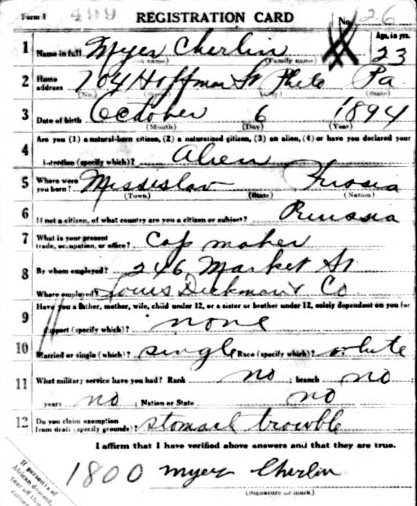 Form 1 499 REGISTRATION CARD No. 26
1 Name in full Myer Cherlin Age, in yrs. 23
(Family name)
2 Home address 704 Hoffman St Phila Pa
(No.)
3 Date of birth October 6 1894
(Month) (Day) (Year)
Are you (1) a natural-born citizen, (2) a naturalized citizen, (3) an alien, (4) or have you declared your
4 intention (specify which)? Alien
5 Where were you born? Missislav Russia
(Town) (State) (Nation)
6 If not a citizen, of what country are you a citizen or subject? Russia
7 What is your present trade, occupation, or office? Cap maker
8 By whom employed? 246 Market St
Where employed? Louis Dickman & Co
Have you a father, mother, wife, child under 12, or a sister or brother under 12, solely dependent on you for
9 support (specify which)? none
10 Married or single (which)? single Race (specify which)? white
11 What military service have you had? Rank no ; branch no
years no ; Nation or State no
12 Do you claim exemption from draft (specify grounds)? stomach trouble
I affirm that I have verified above answers and that they are true.
1800 Myer Cherlin
(Signature or mark)
If person is of
African descent,
tear off this
corner